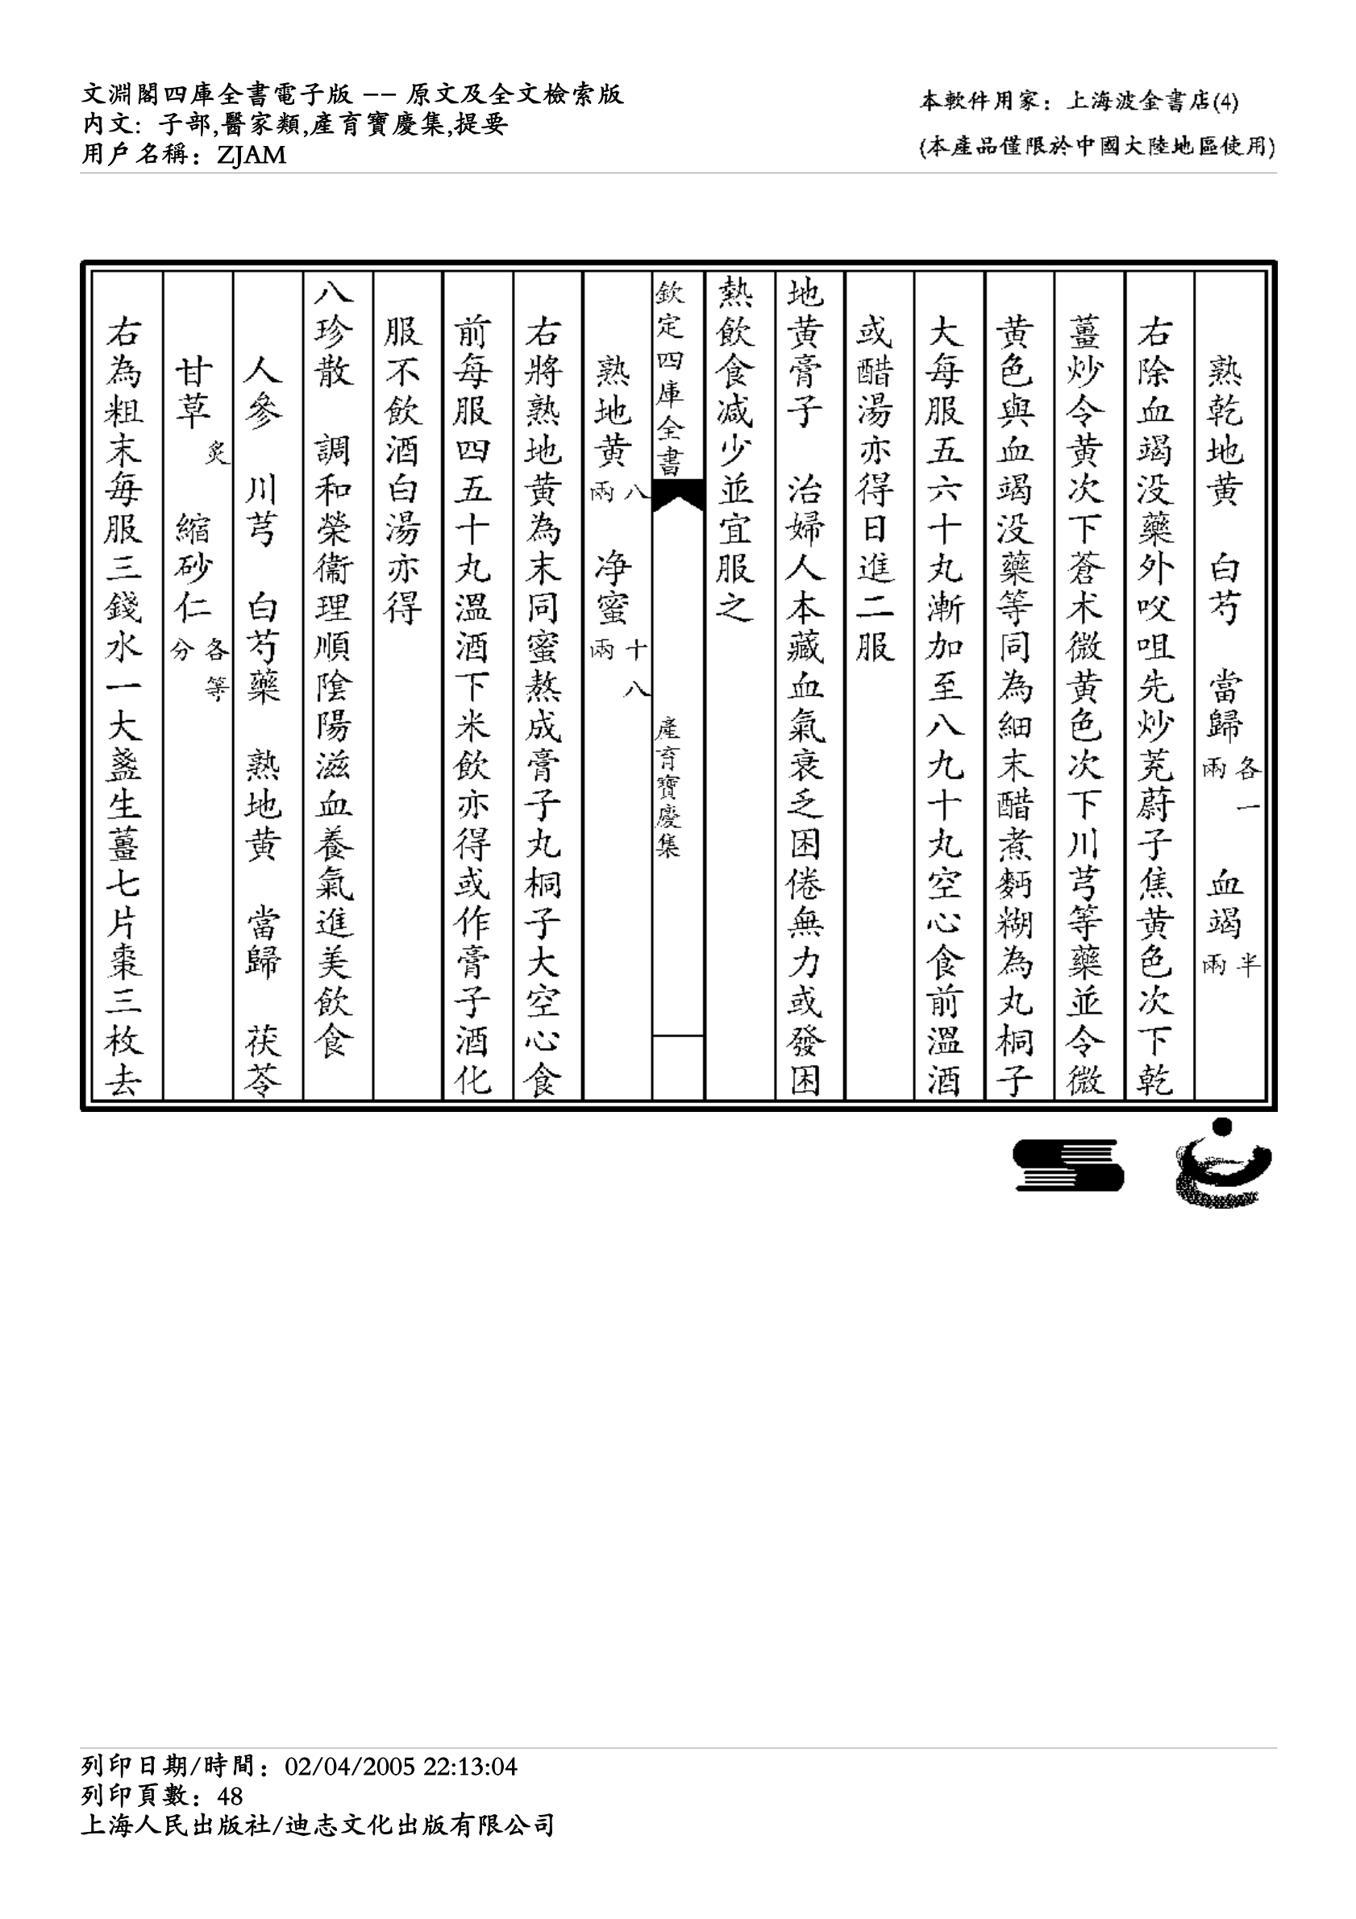 文淵閣四庫全書電子版 -- 原文及全文檢索版
内文: 子部,醫家類,產育寶慶集,提要
用戶名稱: ZJAM
本軟件用家: 上海波金書店(4)
(本產品僅限於中國大陸地區使用)
熟乾地黄 白芍 當歸各一兩 血竭半兩
右除血竭没藥外㕮咀先炒茺蔚子焦黄色次下乾
薑炒令黄次下蒼术微黄色次下川芎等藥並令微
黄色與血竭没藥等同為細末醋煮麪糊為丸桐子
大每服五六十丸漸加至八九十丸空心食前溫酒
或醋湯亦得日進二服
地黄膏子 治婦人本藏血氣衰乏困倦無力或發困
熱飲食減少並宜服之
欽定四庫全書 產育寶慶集
熟地黄八兩 净蜜十八兩
右將熟地黄為末同蜜熬成膏子丸桐子大空心食
前每服四五十丸溫酒下米飲亦得或作膏子酒化
服不飲酒白湯亦得
八珍散 調和榮衞理順陰陽滋血養氣進美飲食
人參 川芎 白芍藥 熟地黄 當歸 茯苓
甘草炙 縮砂仁各等分
右為粗末每服三錢水一大盞生薑七片棗三枚去
列印日期/時間: 02/04/2005 22:13:04
列印頁數: 48
上海人民出版社/迪志文化出版有限公司